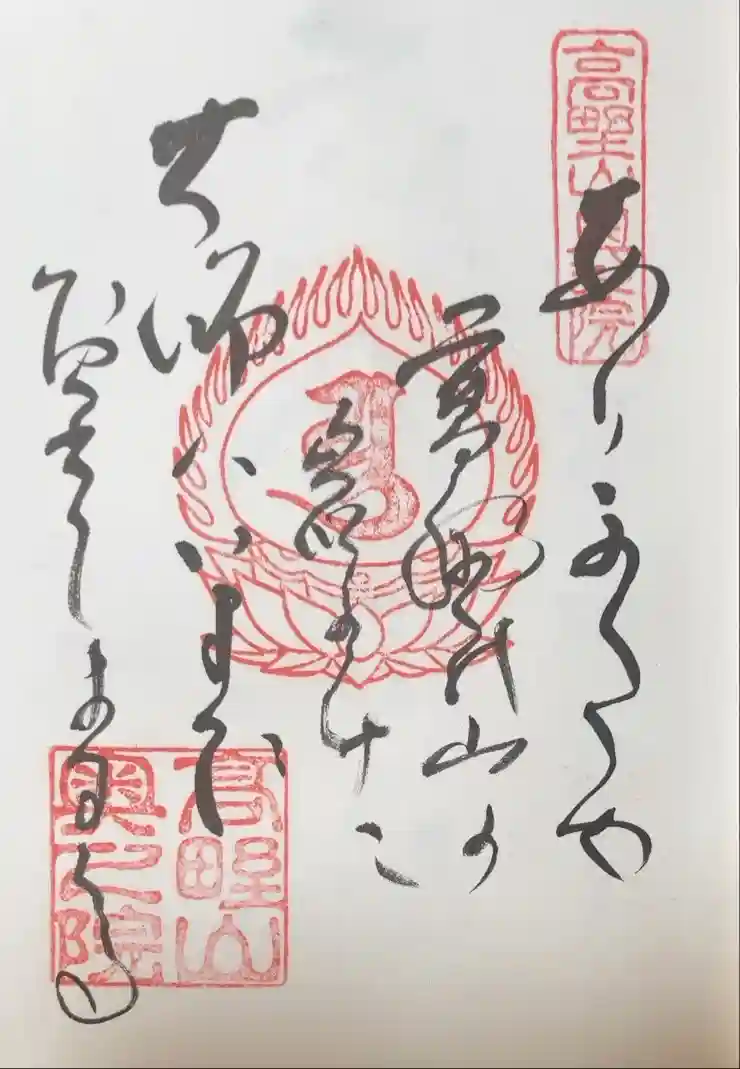 高野山奥之院
ありがたや
高野の山の
岩かけに
大師ハいまだ
おはしまします
高野山
奥之院